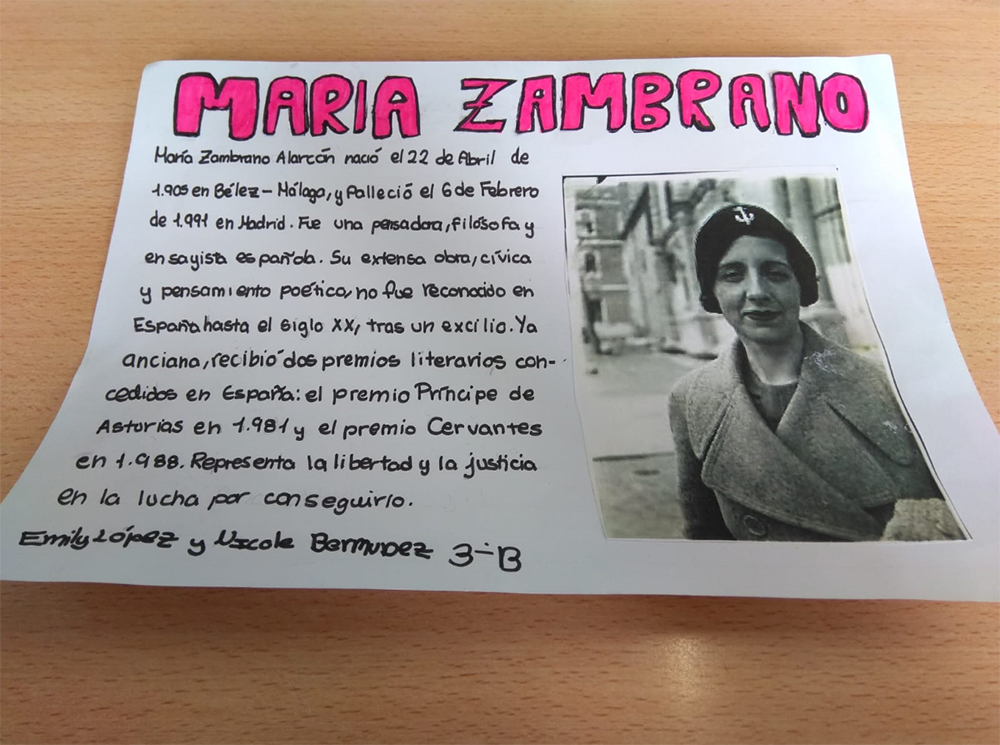 MARIA ZAMBRANO
María Zambrano Alarcón nació el 22 de Abril de
1.905 en Bélez-Málaga, y falleció el 6 de Febrero
de 1.991 en Madrid. Fue una pensadora, filósofa y
ensayista española. Su extensa obra, cívica
y pensamiento poético, no fue reconocido en
España hasta el siglo XX, tras un excilio. Ya
anciana, recibió dos premios literarios con-
cedidos en España: el premio Príncipe de
Asturias en 1.981 y el premio Cervantes
en 1.988. Representa la libertad y la justicia
en la lucha por conseguirlo.
Emily López y Nicole Bermudez 3-B